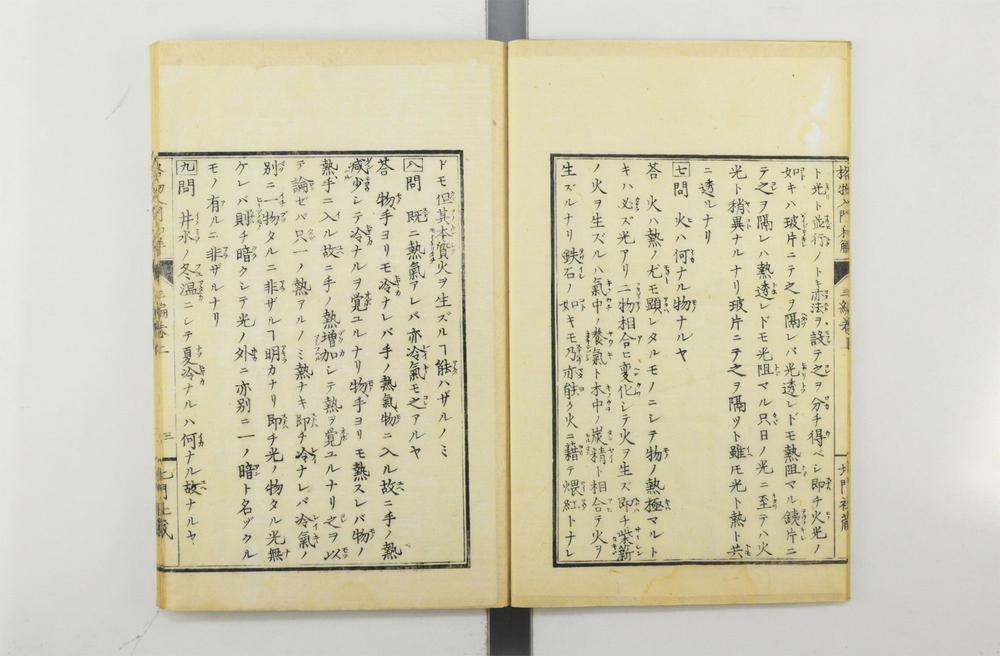 格物入門和解
北門社藏
ト光ト並行ノトキ亦法ヲ設テ之ヲ分チ得ベシ即チ火光ノ
如キハ玻片ニテ之ヲ隔レバ光透レドモ熱阻マル銕片ニ
テ之ヲ隔レハ熱透レドモ光阻マル只日ノ光ニ至テハ火
光ト稍異ナルナリ玻片ニテ之ヲ隔ツト雖モ光ト熱ト共
ニ透ルナリ
七問 火ハ何ナル物ナルヤ
答 火ハ熱ノ尤モ顕レタルモノニシテ物ノ熱極マルト
キハ必ズ光アリ二物相合ヒ変化シテ火ヲ生ズ即チ柴薪
ノ火ヲ生ズルハ氣中ノ養氣ト木中ノ炭精ト相合テ火ヲ
生ズルナリ鉄石ノ如キモ乃亦能ク火ニ藉テ煨紅トナレ
ドモ但其本質火ヲ生ズルヿ能ハザルノミ
八問 既ニ熱氣アレバ亦冷氣モ之アルヤ
答 物手ヨリモ冷ナレバ手ノ熱氣物ニ入ル故ニ手ノ熱
减少シテ冷ナルヲ覺ユルナリ物手ヨリモ熱スレバ物ノ
熱手ニ入ル故ニ手ノ熱増加シテ熱ヲ覺ユルナリ之ヲ以
テ論ゼバ只一ノ熱アルノミ熱ナキ即チ冷ナレバ冷氣ノ
別ニ一物タルニ非ザルヿ明カナリ即チ光ノ物タル光無
ケレバ則チ暗クシテ光ノ外ニ亦別ニ一ノ暗ト名ヅクル
モノ有ルニ非ザルナリ
九問 井水ノ冬温ニシテ夏冷ナルハ何ナル故ナルヤ
三
北門社藏